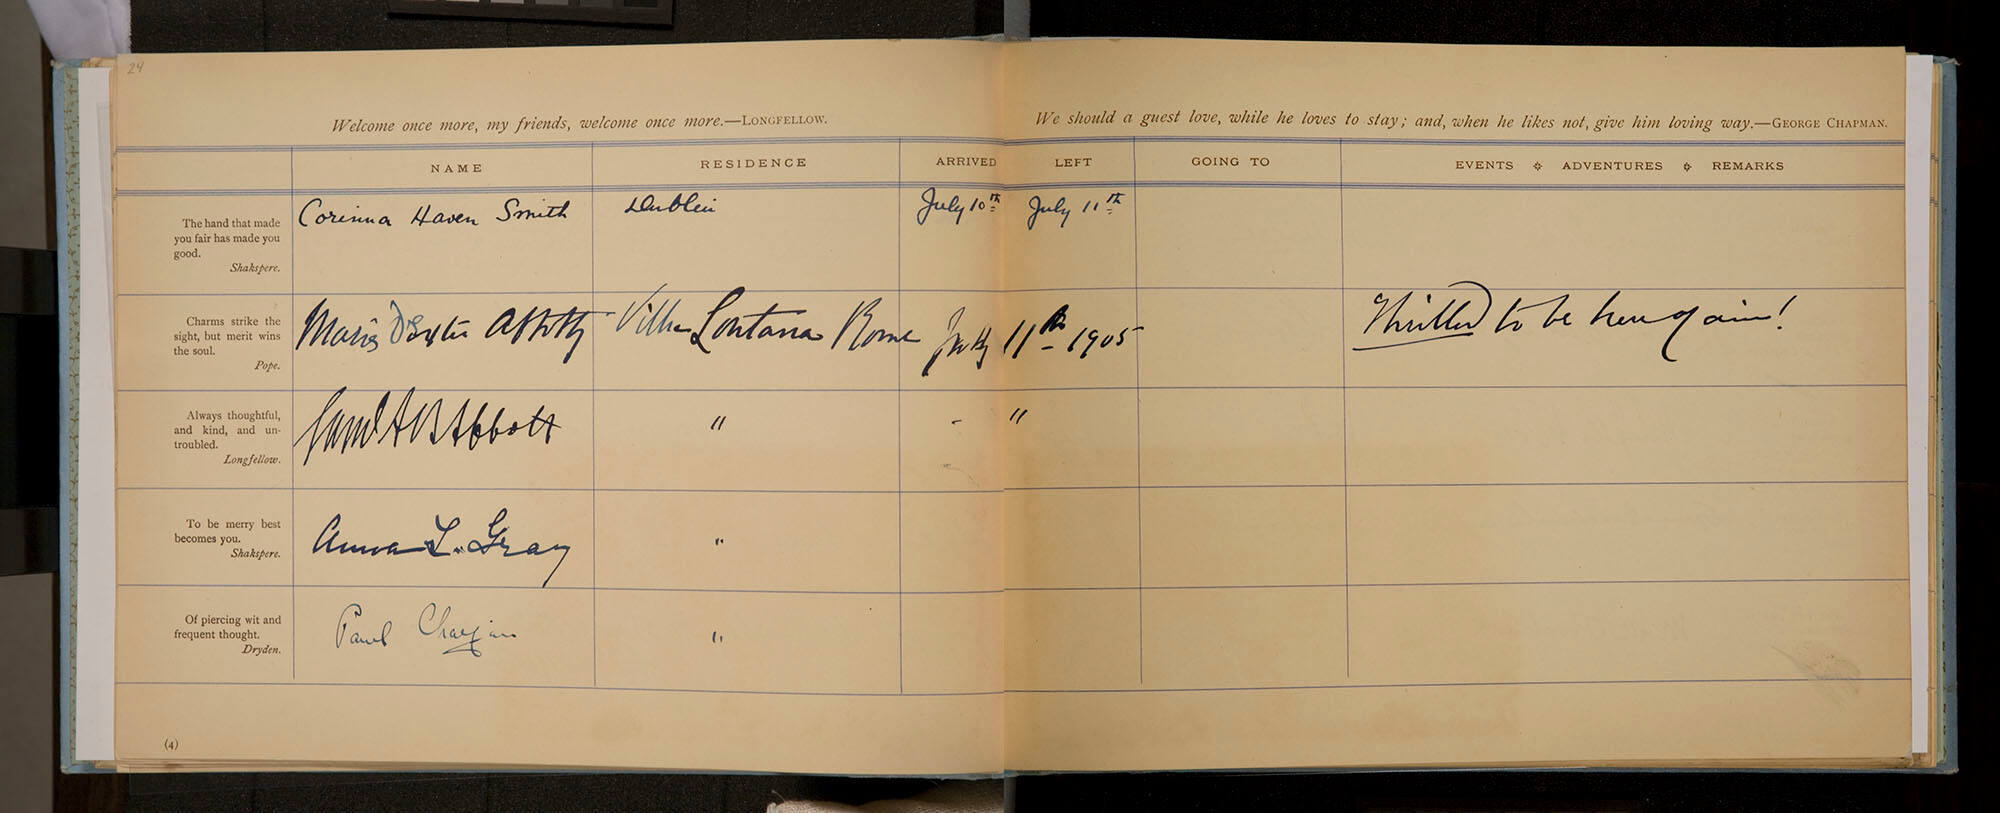 24
Welcome once more, my friends, welcome once more.—LONGFELLOW.
We should a guest love, while he loves to stay; and, when he likes not, give him loving way.—GEORGE CHAPMAN.
NAME RESIDENCE ARRIVED LEFT GOING TO EVENTS ADVENTURES REMARKS
The hand that made
you fair has made you
good.
Shakspere.
Corinna Haven Smith Dublin July 10th July 11th
Charms strike the
sight, but merit wins
the soul.
Pope.
Maria Dexter Abbott Villa Lontana Rome July 11th 1905 Thrilled to be here again!
Always thoughtful,
and kind, and un-
troubled.
Longfellow.
Saml A B Abbott " - "
To be merry best
becomes you.
Shakspere.
Anna L. Gray "
Of piercing wit and
frequent thought.
Dryden.
Paul "
(4)